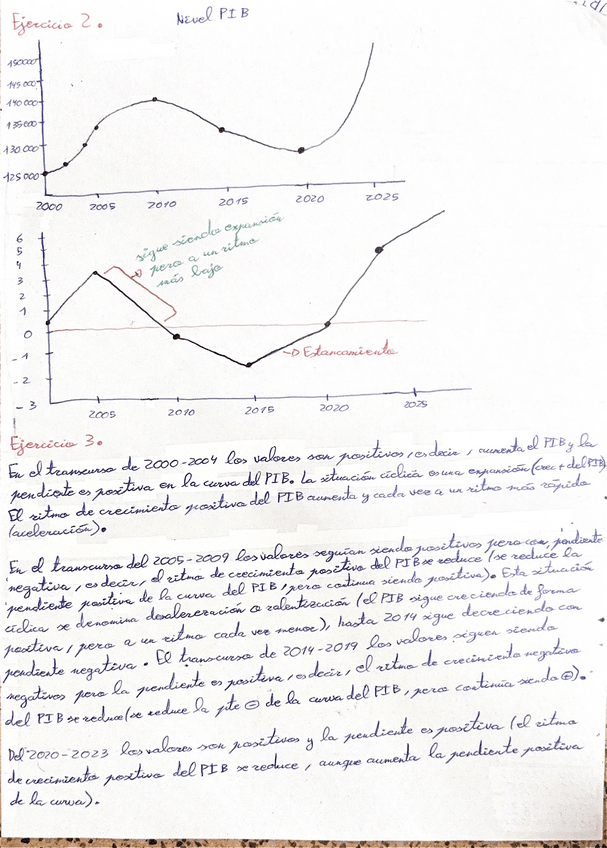 Ejercicio 2.
Nivel PIB
150000
145000
140000
135000
130000
125000
2000 2005 2010 2015 2020 2025
sigue siendo expansión
pero a un ritmo
más bajo
6
5
4
3
2
1
0
-1
-2
-3
Estancamiento
2005 2010 2015 2020 2025
Ejercicio 3.
En el transcurso de 2000-2004 los valores son positivos, es decir, aumenta el PIB y la
pendiente es positiva en la curva del PIB. La situación cíclica es una expansión (crec + del PIB)
El ritmo de crecimiento positivo del PIB aumenta y cada vez a un ritmo más rápido
(aceleración).
En el transcurso del 2005-2009 los valores seguían siendo positivos pero con pendiente
negativa, es decir, el ritmo de crecimiento positivo del PIB se reduce (se reduce la
pendiente positiva de la curva del PIB, pero continua siendo positiva). Esta situación
cíclica se denomina desaleración o ralentización (el PIB sigue creciendo de forma
positiva, pero a un ritmo cada vez menor), hasta 2014 sigue decreciendo con
pendiente negativa. El transcurso de 2014-2019 los valores siguen siendo
negativos pero la pendiente es positiva, es decir, el ritmo de crecimiento negativo
del PIB se reduce (se reduce la pte ⊖ de la curva del PIB, pero continúa siendo ⊕).
Del 2020-2023 los valores son positivos y la pendiente es positiva (el ritmo
de crecimiento positivo del PIB se reduce, aunque aumenta la pendiente positiva
de la curva).